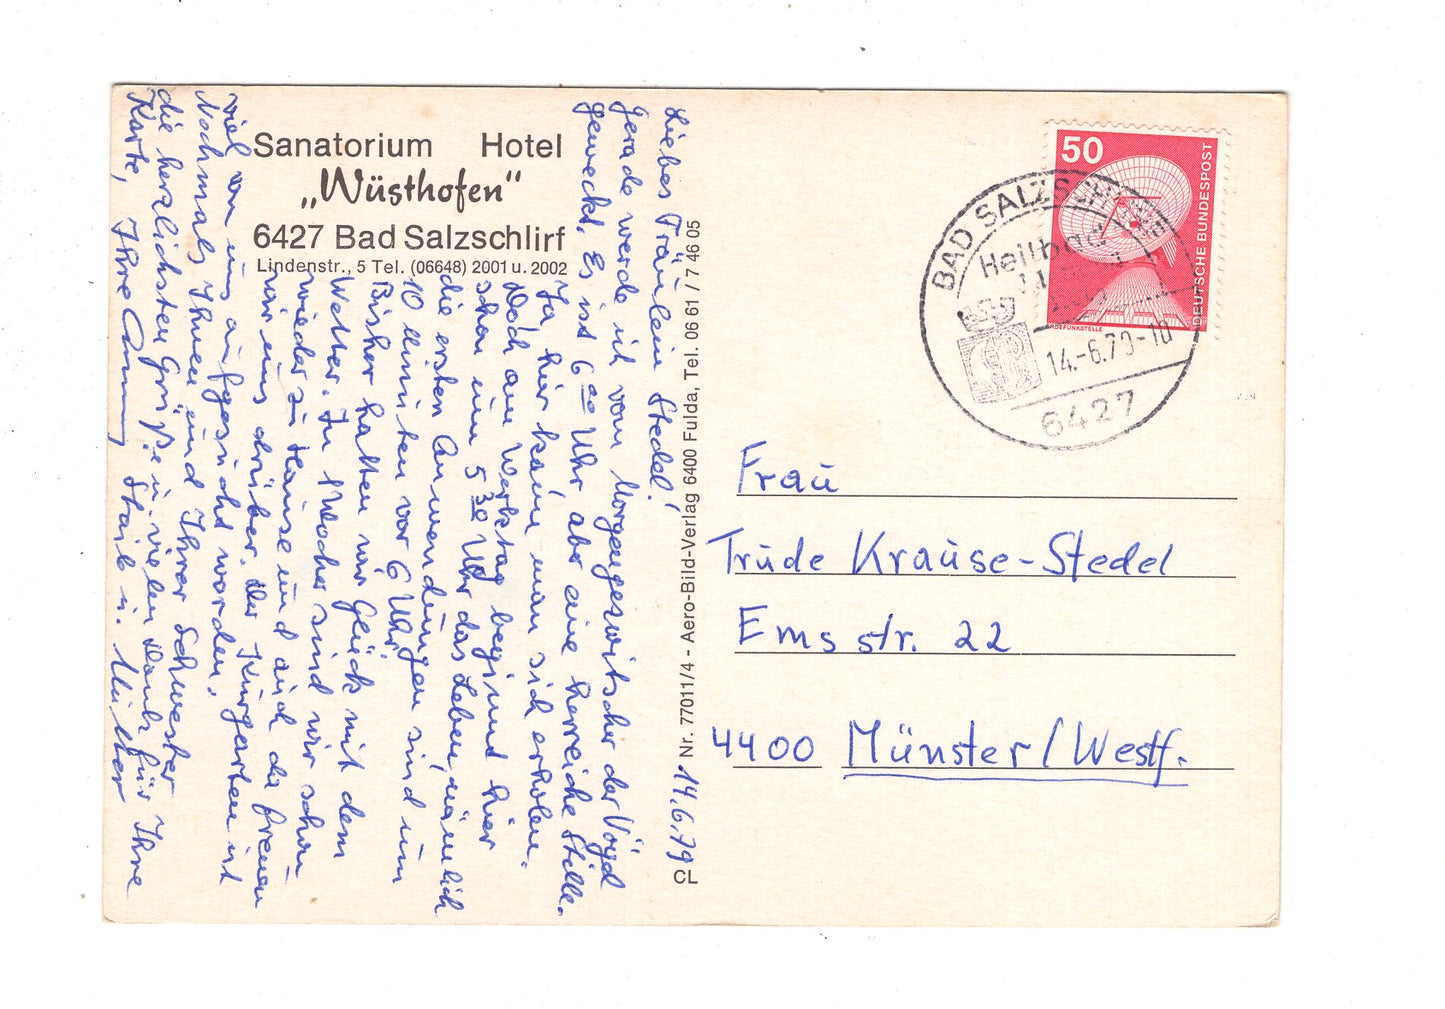 Sanatorium Hotel
„Wüsthofen“
6427 Bad Salzschlirf
Lindenstr., 5 Tel. (06648) 2001 u. 2002
14.6.79
Liebes Fräulein Stedel!
Gerade werde ich vom Morgengezwitscher der Vögel
geweckt. Es ist 6 00 Uhr aber eine herrliche Stille.
Ja, hier kann man sich erholen.
Doch am Werktag beginnt hier
schon um 5 30 Uhr das Leben, nämlich
die ersten Anwendungen sind um
10 Minuten vor 6 Uhr.
Bisher hatten wir Glück mit dem
Wetter. In 1 Woche sind wir schon
wieder zu Hause und auch da freuen
wir uns drüber. Der Kurgarten ist
viel von uns aufgesucht worden.
Nochmals Ihnen und Ihrer Schwester
die herzlichsten Grüße u. vielen Dank für Ihre
Karte, Ihre Staib u. Mutter
Nr. 77011/4 - Aero-Bild-Verlag 6400 Fulda, Tel. 06 61 / 7 46 05
CL
50
DEUTSCHE BUNDESPOST
ERDEFUNKSTELLE
BAD SALZSCHLIRF
Heilbad
14.-6.79-10
6427
Frau
Trude Krause-Stedel
Emsstr. 22
4400 Münster/Westf.